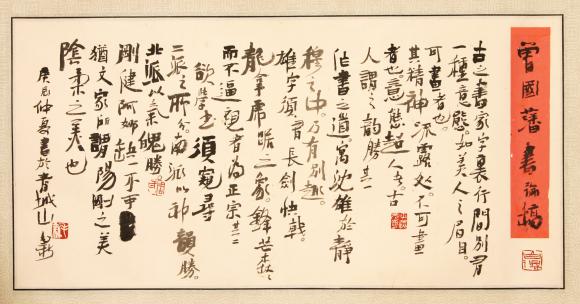 曾國藩書論稿
古之書家字裏行間別有
一種意態。如美人之眉目
可畫者也。
其精神流露處。不可畫
者也。意態超人者。古
人謂之韵勝 其一
作書之道寓沈雄於靜
穆之中。乃有別趣。
雄字須有長劍快戟。
龍拏虎踞之象。鋒芒森森
而不逼視者為正宗 其二
須窺尋
二派之所分。南派以神韻勝。
北派以氣魄勝
剛健婀娜缺一不可
猶文家所謂陽剛之美
陰柔之美也
仲夏書於青城山